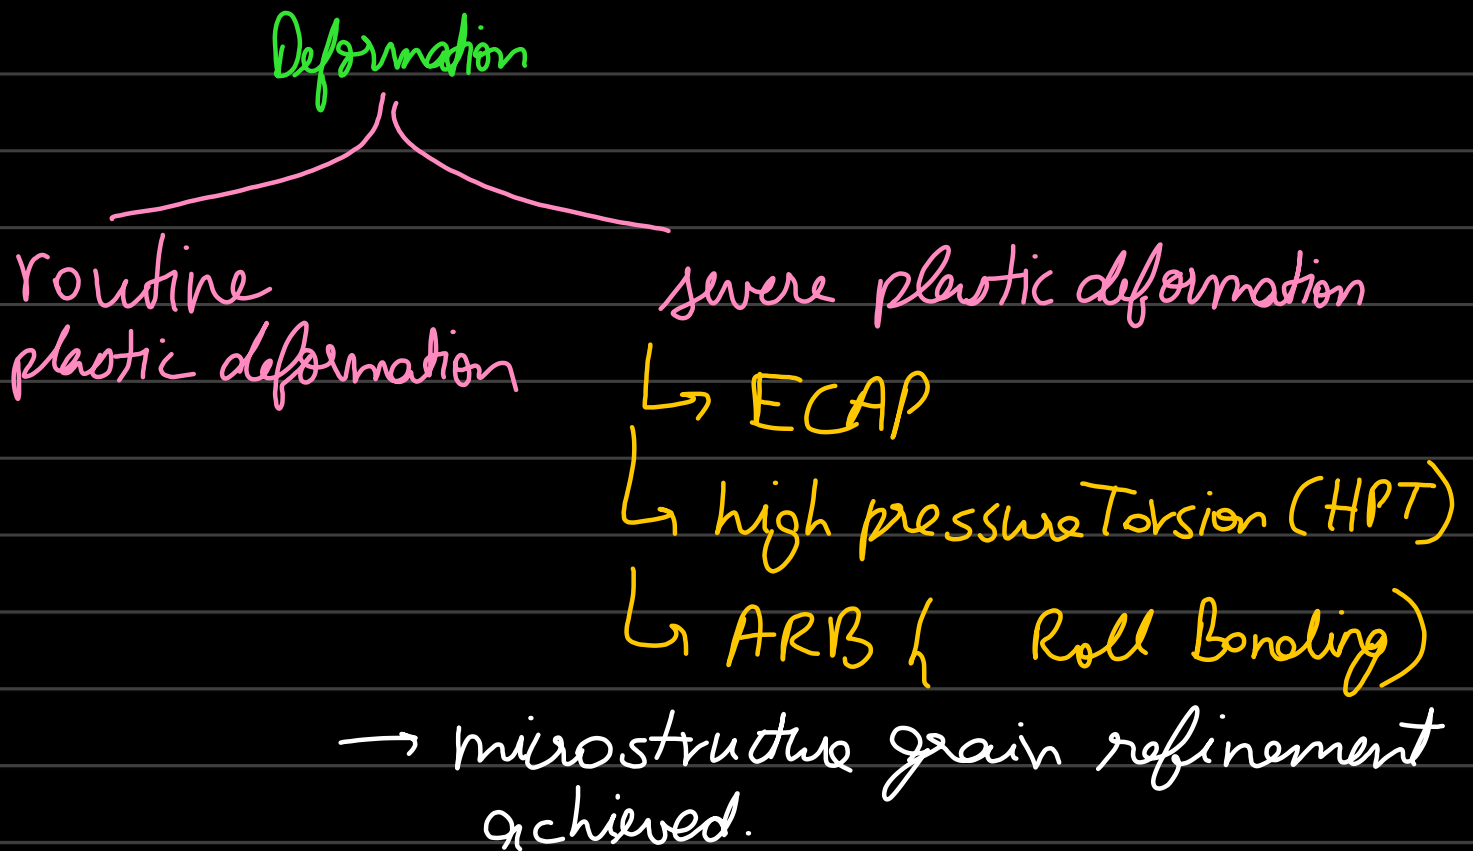 Deformation
routine
plastic deformation
severe plastic deformation
↳ ECAP
↳ high pressure Torsion (HPT)
↳ ARB ( Roll Bonding)
→ microstructure grain refinement
achieved.